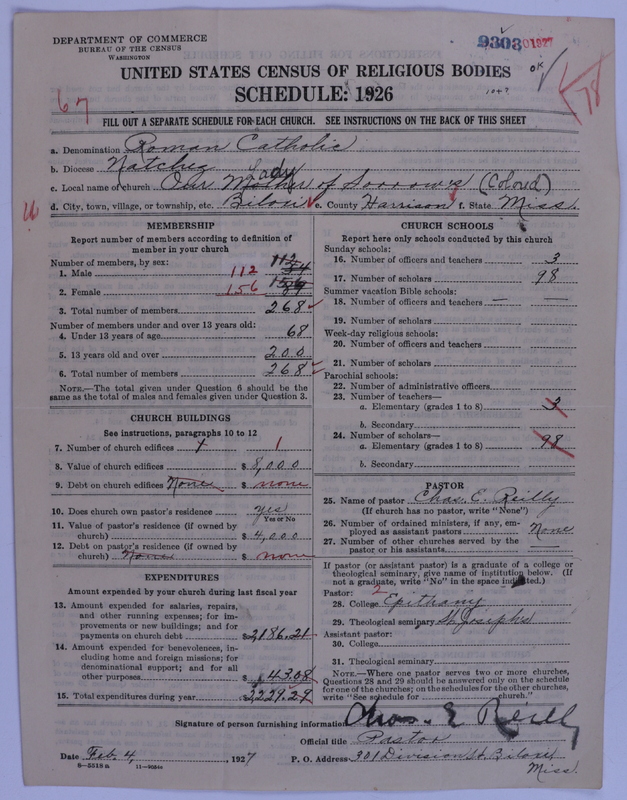 DEPARTMENT OF COMMERCE
BUREAU OF THE CENSUS
WASHINGTON
93030 1927
OK
1047
67
78
UNITED STATES CENSUS OF RELIGIOUS BODIES
SCHEDULE: 1926
FILL OUT A SEPARATE SCHEDULE FOR EACH CHURCH. SEE INSTRUCTIONS ON THE BACK OF THIS SHEET
a. Denomination Roman Catholic
b. Diocese Natchez
Lady
c. Local name of church Our Mother of Sorrows (Colored)
d. City, town, village, or township, etc. Biloxi e. County Harrison f. State Miss.
MEMBERSHIP
Report number of members according to definition of
member in your church
Number of members, by sex:
1. Male 112 112
2. Female 156 156
3. Total number of members 268
Number of members under and over 13 years old:
4. Under 13 years of age 68
5. 13 years old and over 200
6. Total number of members 268
NOTE.—The total given under Question 6 should be the
same as the total of males and females given under Question 3.
CHURCH BUILDINGS
See instructions, paragraphs 10 to 12
7. Number of church edifices 1
8. Value of church edifices $ 8,000
9. Debt on church edifices None $ none
10. Does church own pastor's residence yes
Yes or No
11. Value of pastor's residence (if owned by
church) $ 4,000
12. Debt on pastor's residence (if owned by
church) None $ none
EXPENDITURES
Amount expended by your church during last fiscal year
13. Amount expended for salaries, repairs,
and other running expenses; for im-
provements or new buildings; and for
payments on church debt $2186.21
14. Amount expended for benevolences, in-
cluding home and foreign missions; for
denominational support; and for all
other purposes $ 43.08
15. Total expenditures during year $2229.29
CHURCH SCHOOLS
Report here only schools conducted by this church
Sunday schools:
16. Number of officers and teachers 3
17. Number of scholars 98
Summer vacation Bible schools:
18. Number of officers and teachers
19. Number of scholars
Week-day religious schools:
20. Number of officers and teachers
21. Number of scholars
Parochial schools:
22. Number of administrative officers
23. Number of teachers—
a. Elementary (grades 1 to 8) 3
b. Secondary
24. Number of scholars—
a. Elementary (grades 1 to 8) 98
b. Secondary
PASTOR
25. Name of pastor Chas. E. Reilly
(If church has no pastor, write "None")
26. Number of ordained ministers, if any, em-
ployed as assistant pastors None
27. Number of other churches served by the
pastor or his assistants
If pastor (or assistant pastor) is a graduate of a college or
theological seminary, give name of institution below. (If
not a graduate, write "No" in the space indicated.)
Pastor: 2
28. College Epithany
29. Theological seminary St. Josephs
Assistant pastor:
30. College
31. Theological seminary
NOTE.—Where one pastor serves two or more churches,
Questions 28 and 29 should be answered only on the schedule
for one of the churches; on the schedules for the other churches,
write "See schedule for church."
Signature of person furnishing information Chas. E Reilly
Official title Pastor
Date Feb. 4, 1927 P. O. Address 301 Division St. Biloxi
Miss.
8—5518a 11—9554a